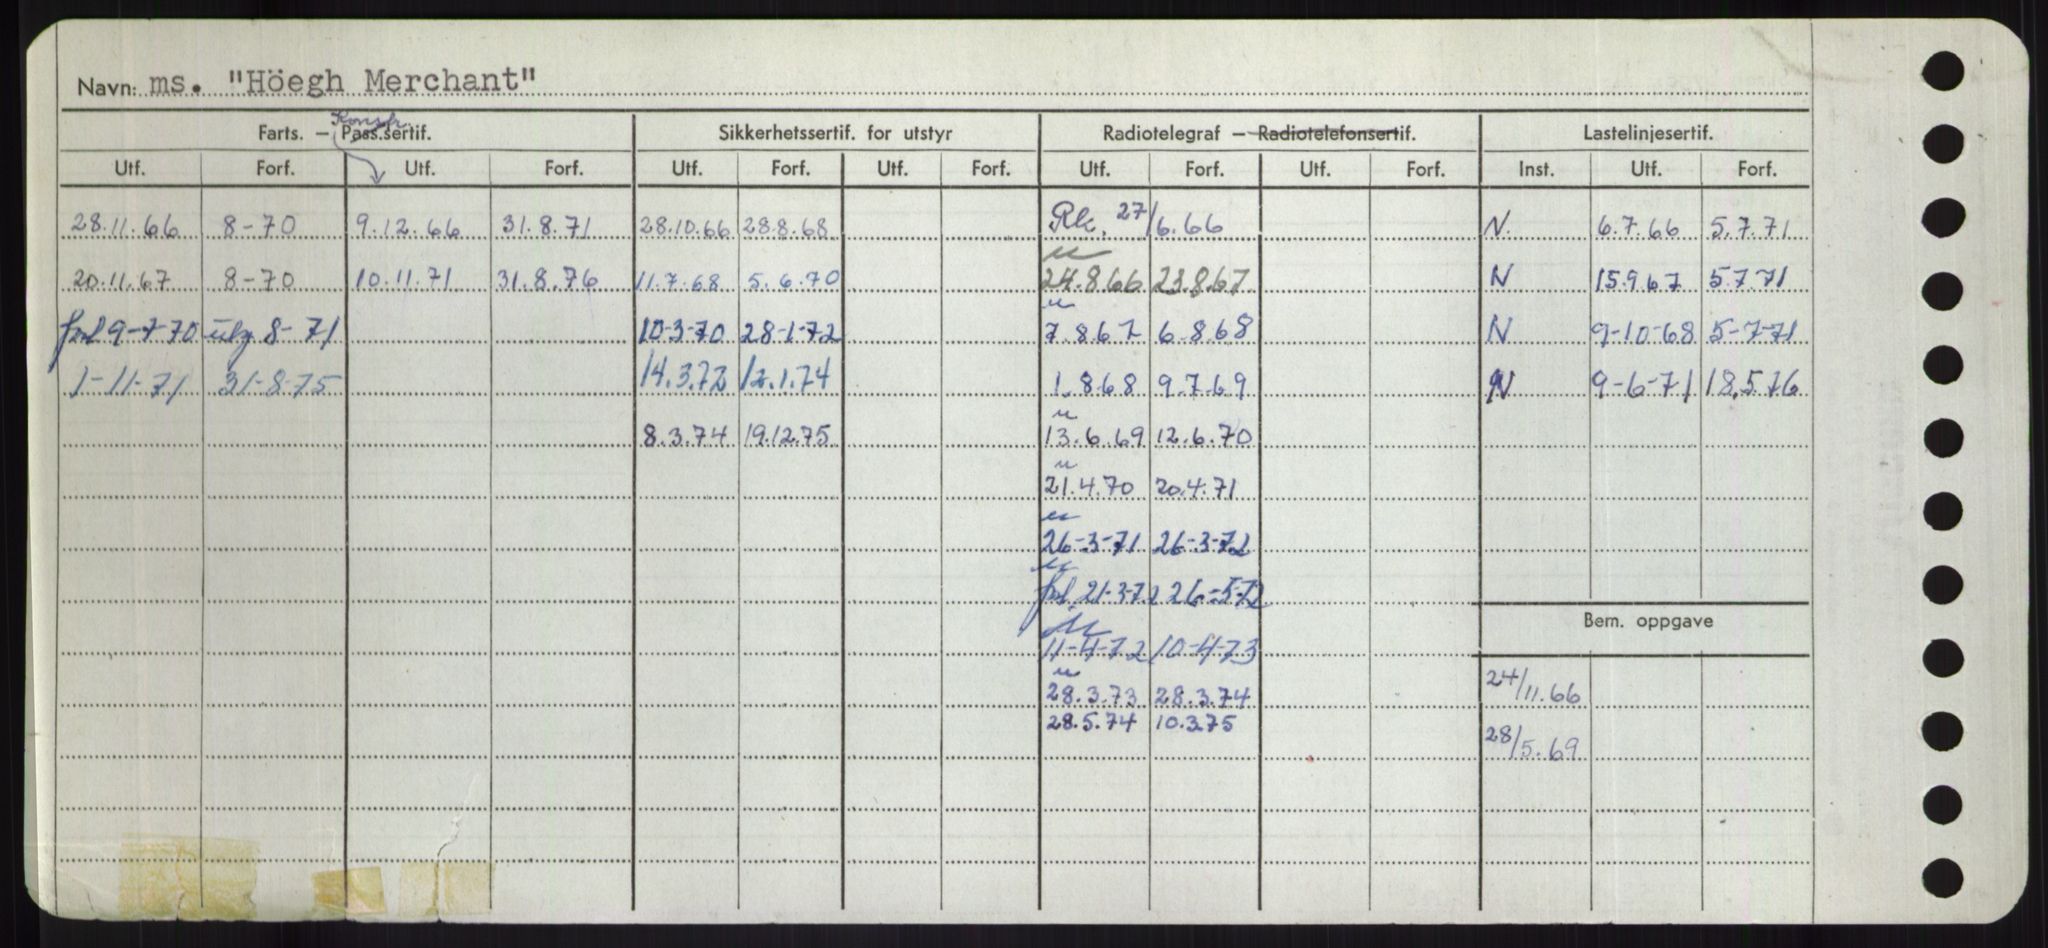 Navn: ms. "Höegh Merchant"
Konstr.
Farts. – Pass.sertif. Sikkerhetssertif. for utstyr Radiotelegraf – Radiotelefonsertif. Lastelinjesertif.
Utf. Forf. Utf. Forf. Utf. Forf. Utf. Forf. Utf. Forf. Utf. Forf. Inst. Utf. Forf.
28.11.66 8-70 9.12.66 31.8.71 28.10.66 28.8.68 27/6.66 N. 6.7.66 5.7.71
20.11.67 8-70 10.11.71 31.8.76 11.7.68 5.6.70 24.8.66 23.8.67 N 15.9.67 5.7.71
9-7-70 8-71 10-3-70 28-1-72 7.8.67 6.8.68 N 9-10-68 5-7-71
1-11-71 31-8-75 14.3.72 12.1.74 1.8.68 9.7.69 N 9-6-71 18.5.76
8.3.74 19.12.75 13.6.69 12.6.70
21.4.70 20.4.71
26-3-71 26-3-72
21-3-72 26-5-72
Bem. oppgave
11-4-72 10-4-73
28.3.73 28.3.74 24/11.66
28.5.74 10.3.75
28/5.69